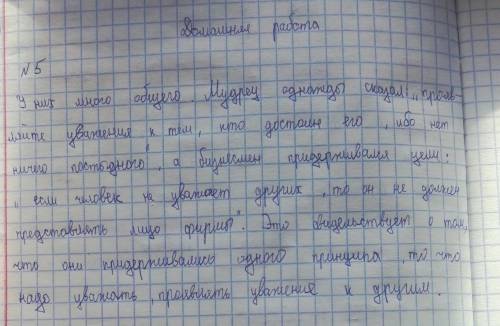 Домашняя работа
N5
У них много общего. Мудрец однажды сказал: „прояв-
ляйте уважения к тем, кто достоин его, ибо нет
ничего постыдного", а бизнесмен придерживался цели:
„если человек не уважает других, то он не должен
представлять лицо фирмы". Это свидельствует о том,
что они придерживались одного принципа, то что
надо уважать, проявлять уважения к другим.